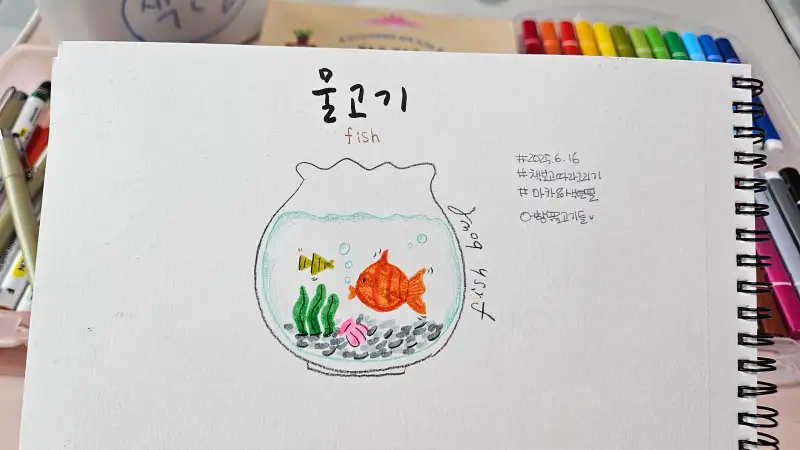 물고기
fish
fish bowl
#2025.6.16
#책보고따라그리기
#마카&색연필
어항물고기들